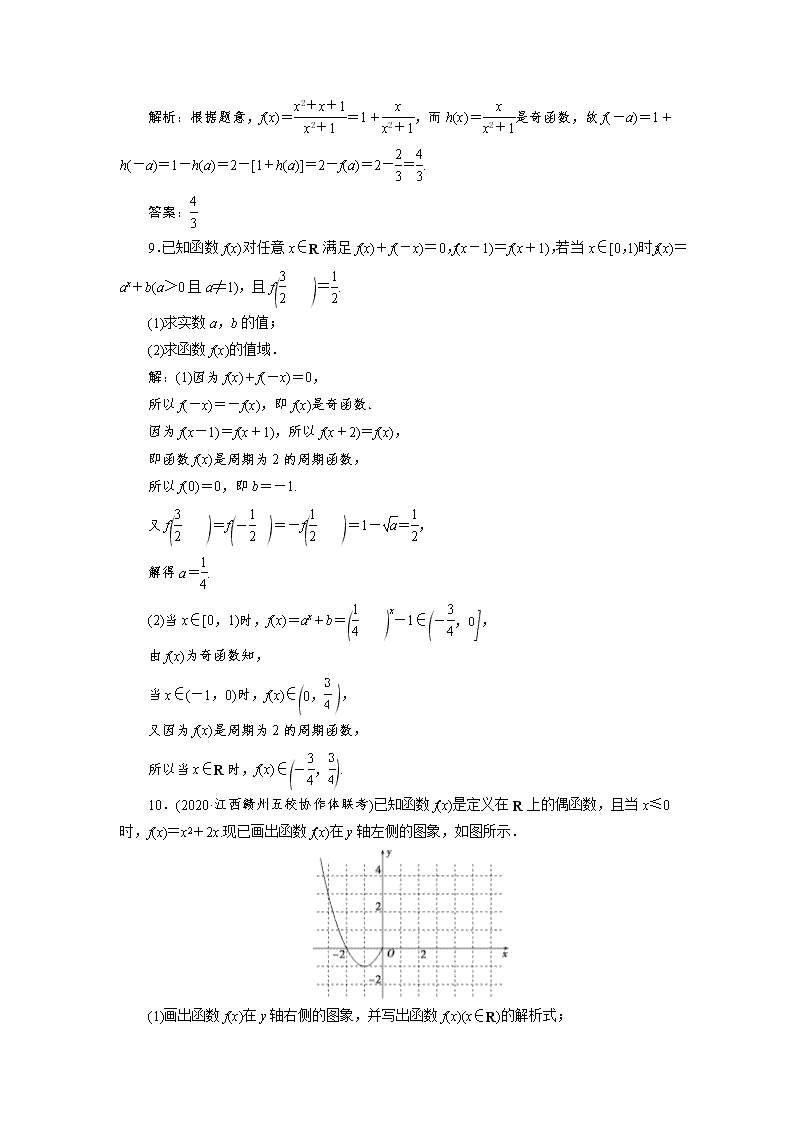 解析:根据题意,f(x)=\frac{x²+x+1}{x²+1}=1+\frac{x}{x²+1},而 h(x)=\frac{x}{x²+1}是奇函数,故 f(-a)=1+
h(-a)=1-h(a)=2-[1+h(a)]=2-f(a)=2-\frac{2}{3}=\frac{4}{3}.
答案:\frac{4}{3}
9.已知函数 f(x)对任意 x∈R 满足 f(x)+f(-x)=0,f(x-1)=f(x+1),若当 x∈[0,1)时,f(x)=
aˣ+b(a>0 且 a≠1),且 f(\frac{3}{2})=\frac{1}{2}.
(1)求实数 a,b 的值;
(2)求函数 f(x)的值域.
解:(1)因为 f(x)+f(-x)=0,
所以 f(-x)=-f(x),即 f(x)是奇函数.
因为 f(x-1)=f(x+1),所以 f(x+2)=f(x),
即函数 f(x)是周期为 2 的周期函数,
所以 f(0)=0,即 b=-1.
又 f(\frac{3}{2})=f(-\frac{1}{2})=-f(\frac{1}{2})=1-√a=\frac{1}{2},
解得 a=\frac{1}{4}.
(2)当 x∈[0,1)时,f(x)=aˣ+b=(\frac{1}{4})ˣ-1∈(-\frac{3}{4},0],
由 f(x)为奇函数知,
当 x∈(-1,0)时,f(x)∈(0,\frac{3}{4}),
又因为 f(x)是周期为 2 的周期函数,
所以当 x∈R 时,f(x)∈(-\frac{3}{4},\frac{3}{4}).
10.(2020·江西赣州五校协作体联考)已知函数 f(x)是定义在 R 上的偶函数,且当 x≤0
时,f(x)=x²+2x.现已画出函数 f(x)在 y 轴左侧的图象,如图所示.
y
4
2
-2 O 2 x
-2
(1)画出函数 f(x)在 y 轴右侧的图象,并写出函数 f(x)(x∈R)的解析式;